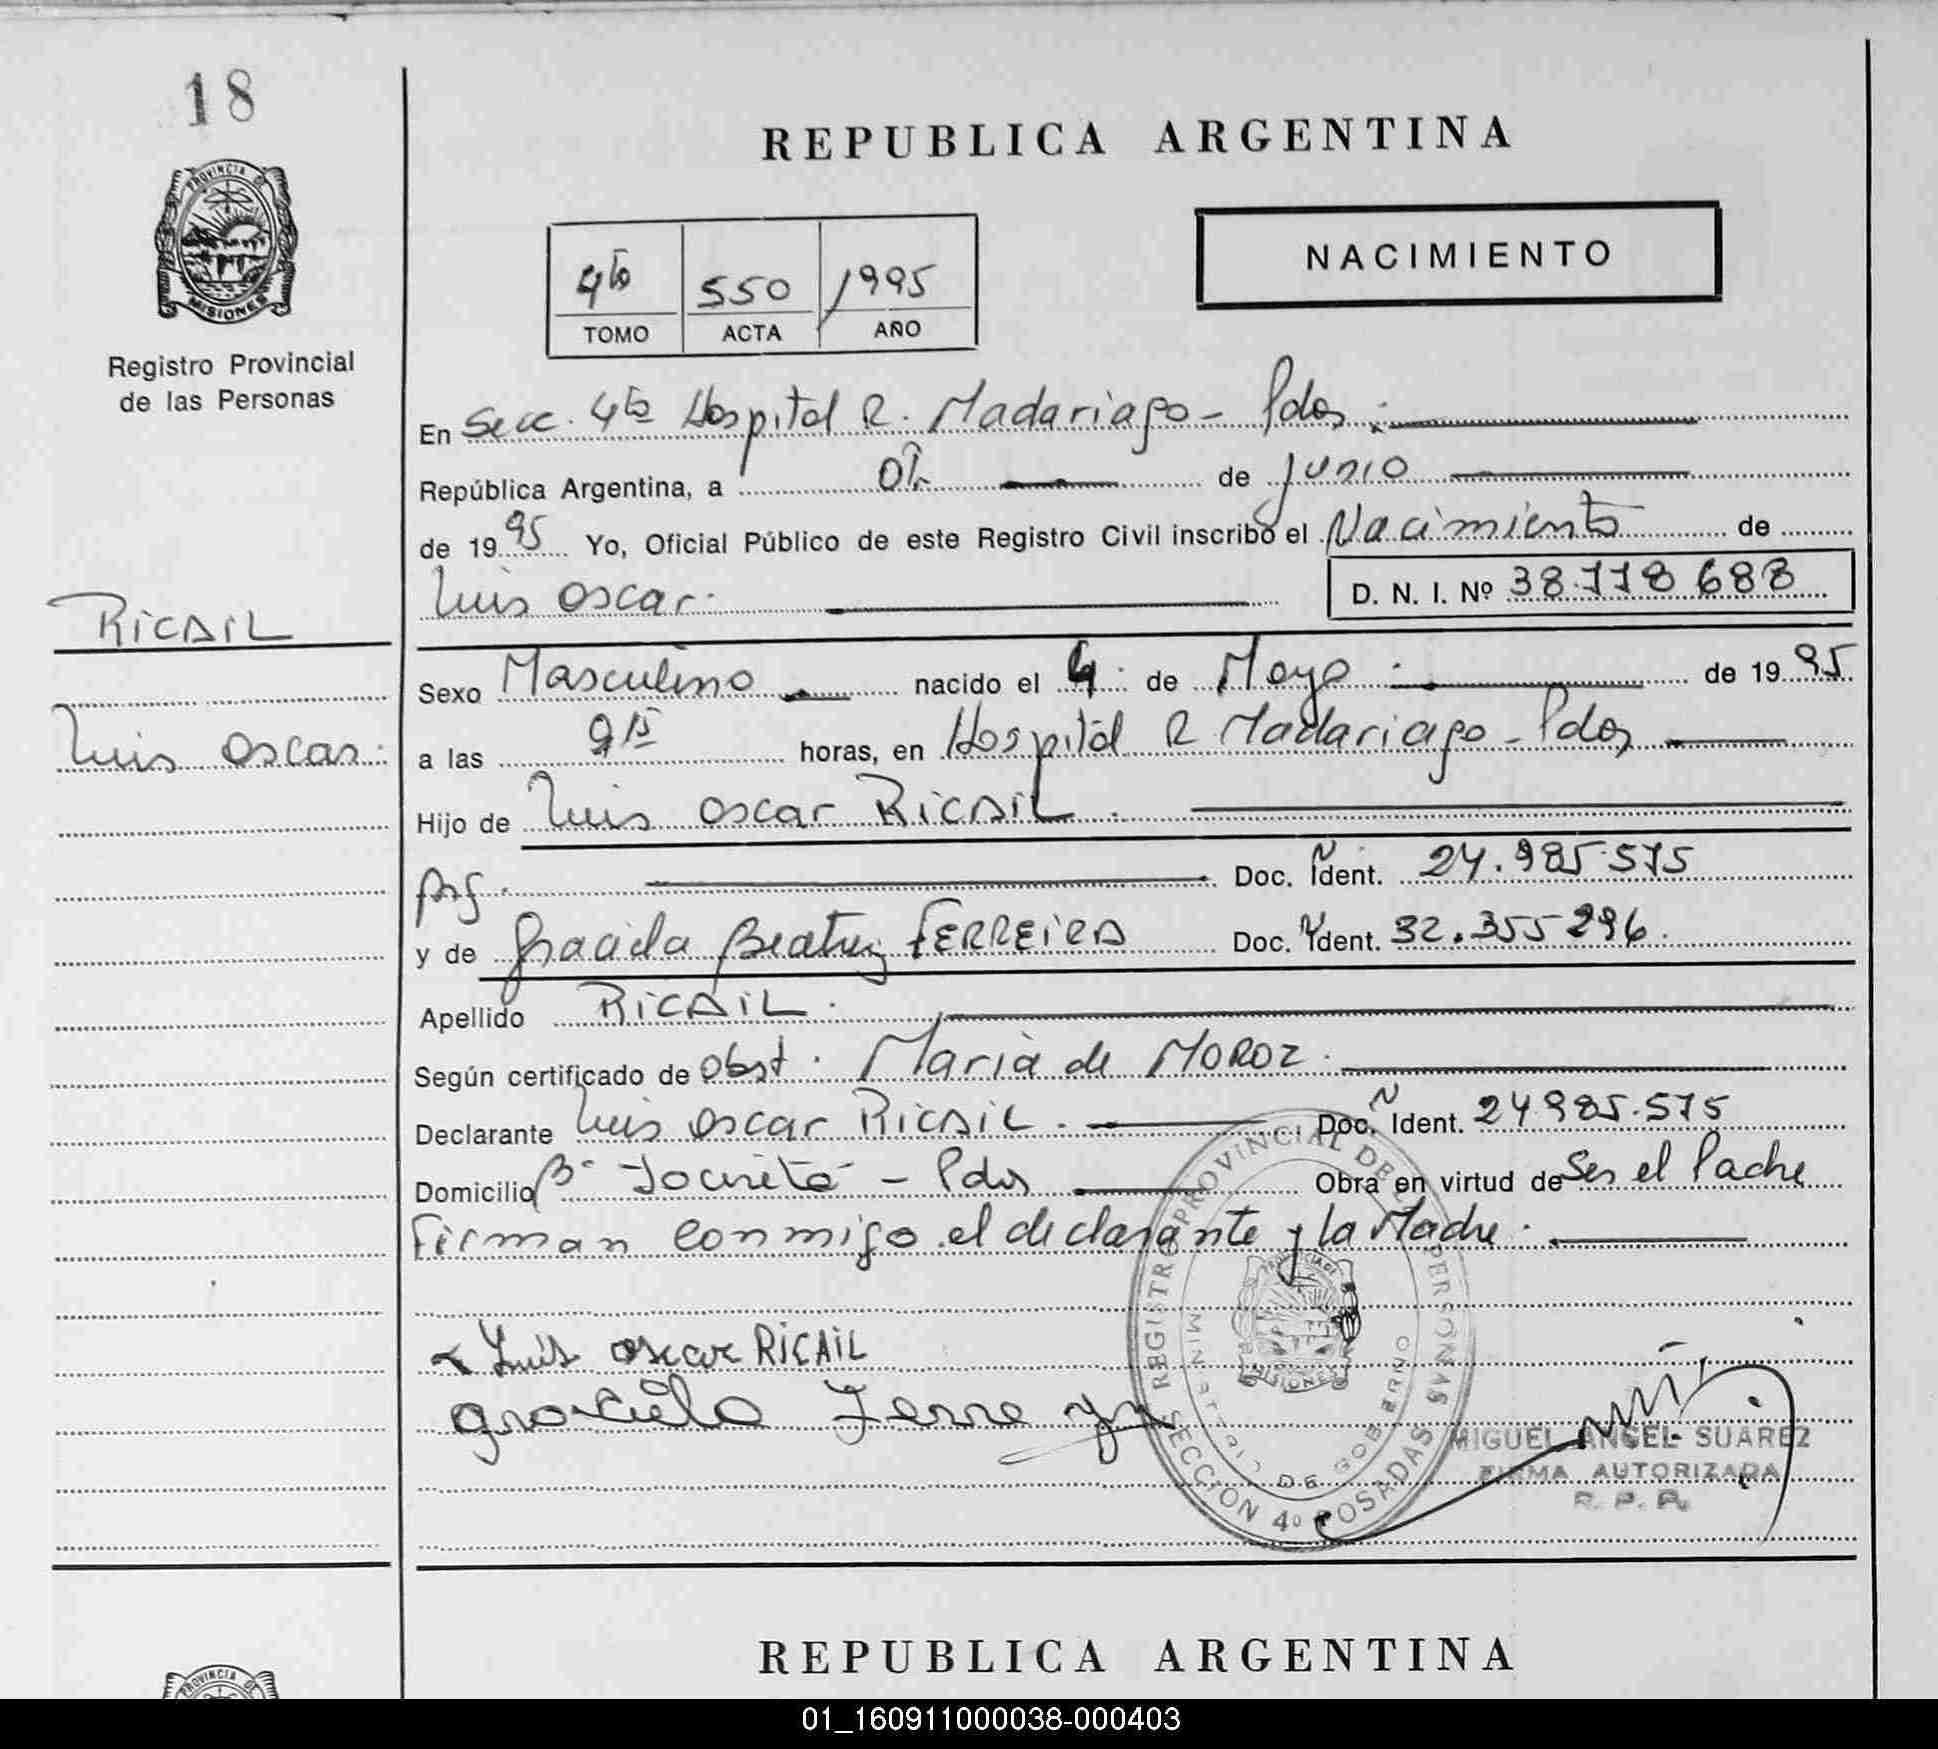 18
PROVINCIA DE
MISIONES
Registro Provincial
de las Personas
REPUBLICA ARGENTINA
4to 550 1995
TOMO ACTA AÑO
NACIMIENTO
En Secc. 4ta Hospital R. Madariaga - Pdas.
República Argentina, a de Junio
de 1995 Yo, Oficial Público de este Registro Civil inscribo el Nacimiento de
Luis Oscar. D. N. I. Nº 38.778 688
RICAIL
Sexo Masculino nacido el 4 de Mayo de 1995
Luis Oscar:
a las 9 15 horas, en Hospital R Madariaga - Pdas
Hijo de Luis Oscar RICAIL.
Arg. Doc. Ident. 24.985.575
y de Graciela Beatriz FERREIRA Doc. Ident. 32.355 296.
Apellido RICAIL.
Según certificado de Obst. Maria de MOROZ.
Declarante Luis Oscar RICAIL. Doc. Ident. 24985.575
Domicilio Bº - Pdas Obra en virtud de Ser el Padre
Firman conmigo el declarante y la Madre.
Luis oscar RICAIL
Graciela
REGISTRO PROVINCIAL DE PERSONAS
MINISTERIO DE GOBIERNO
SECCION 4º POSADAS
MISIONES
MIGUEL ANGEL SUAREZ
FIRMA AUTORIZADA
R. P. P.
REPUBLICA ARGENTINA
PROVINCIA DE
01_160911000038-000403